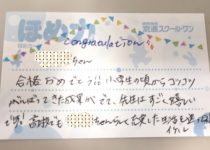 ほめカ
京進スクール・ワン
Congratulation!
ちゃん
合格おめでとう!! 小学生の頃からコツコツ
がんばってきた成果がでて、先生はすごく嬉しい
です! 高校でも ちゃんらしく充実した生活を送ってね